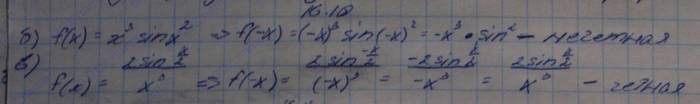 10.10
б) f(x) = x³ sinx² => f(-x) = (-x)³ sin(-x)² = -x³ • sin² - нечетная
в) f(x) = 2sin x/2 / x³ => f(-x) = 2sin -x/2 / (-x)³ = -2sin x/2 / -x³ = 2sin x/2 / x³ - четная